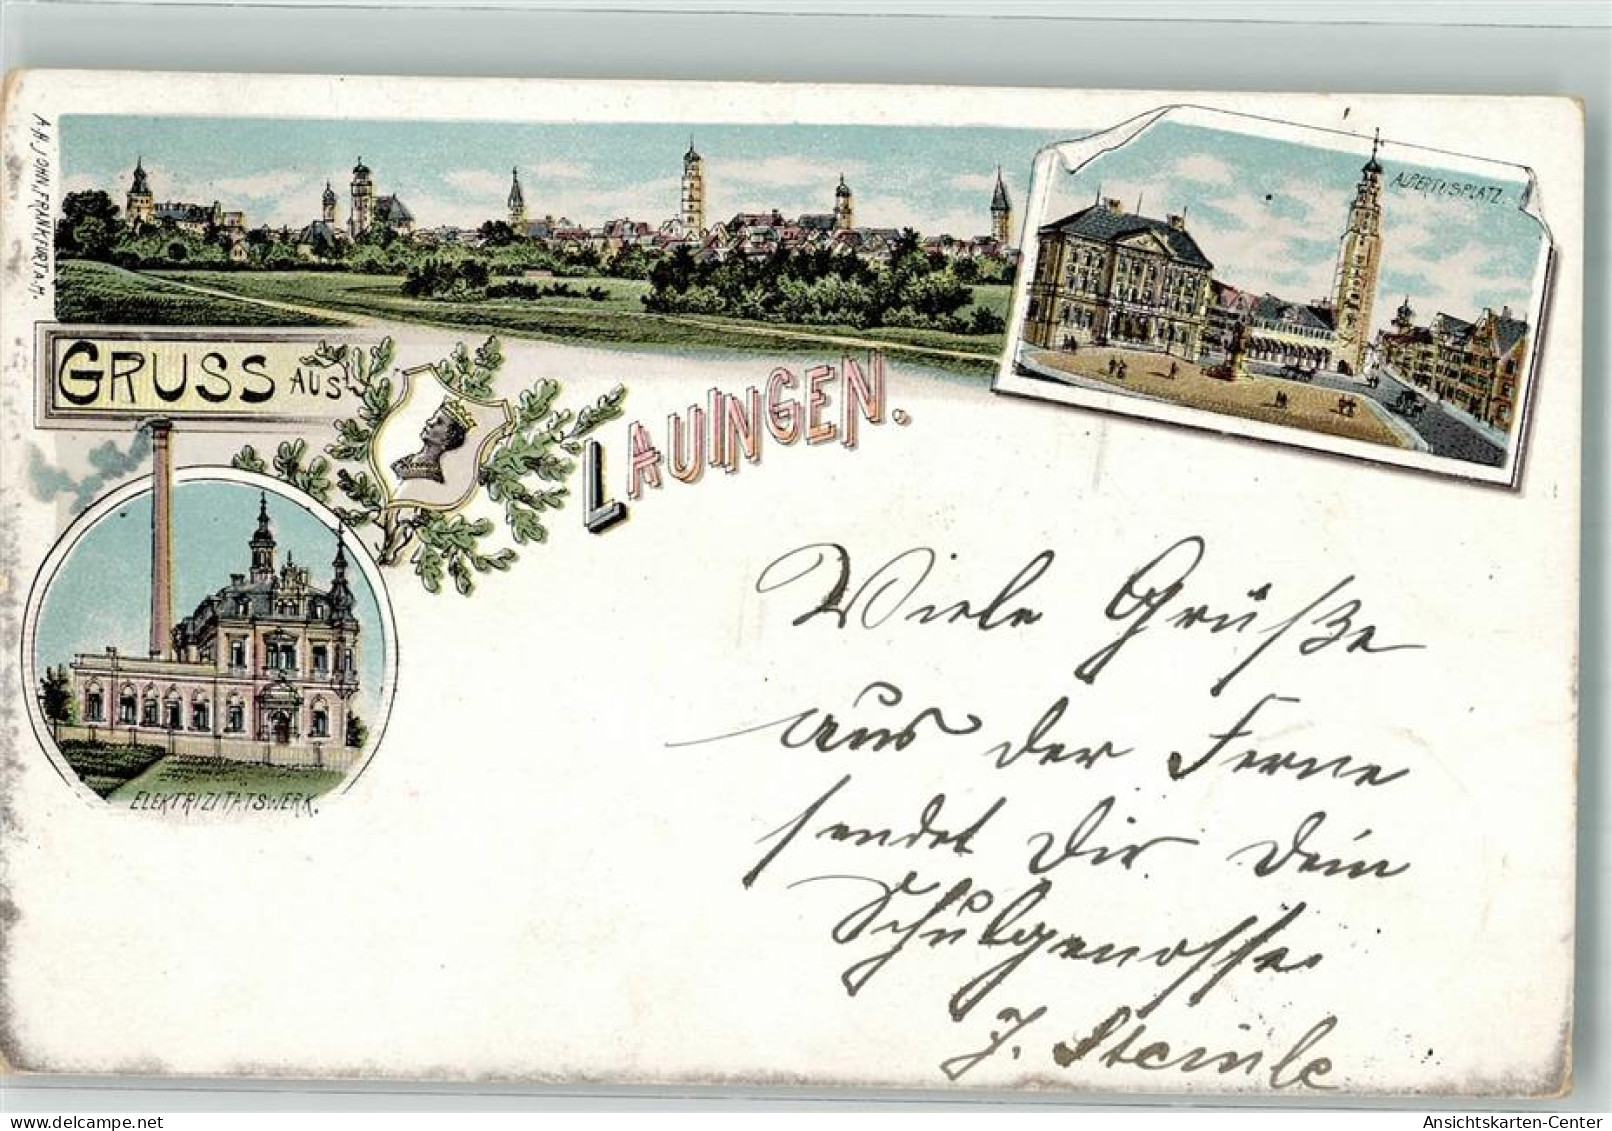 A.H. JOHN, FRANKFURT a. M.
ALBERTUSPLATZ.
GRUSS AUS
LAUINGEN.
ELEKTRIZITÄTSWERK.
Viele Grüße
aus der Ferne
sendet Dir Dein
Schulgenosse
J. Steinle
Ansichtskarten-Center